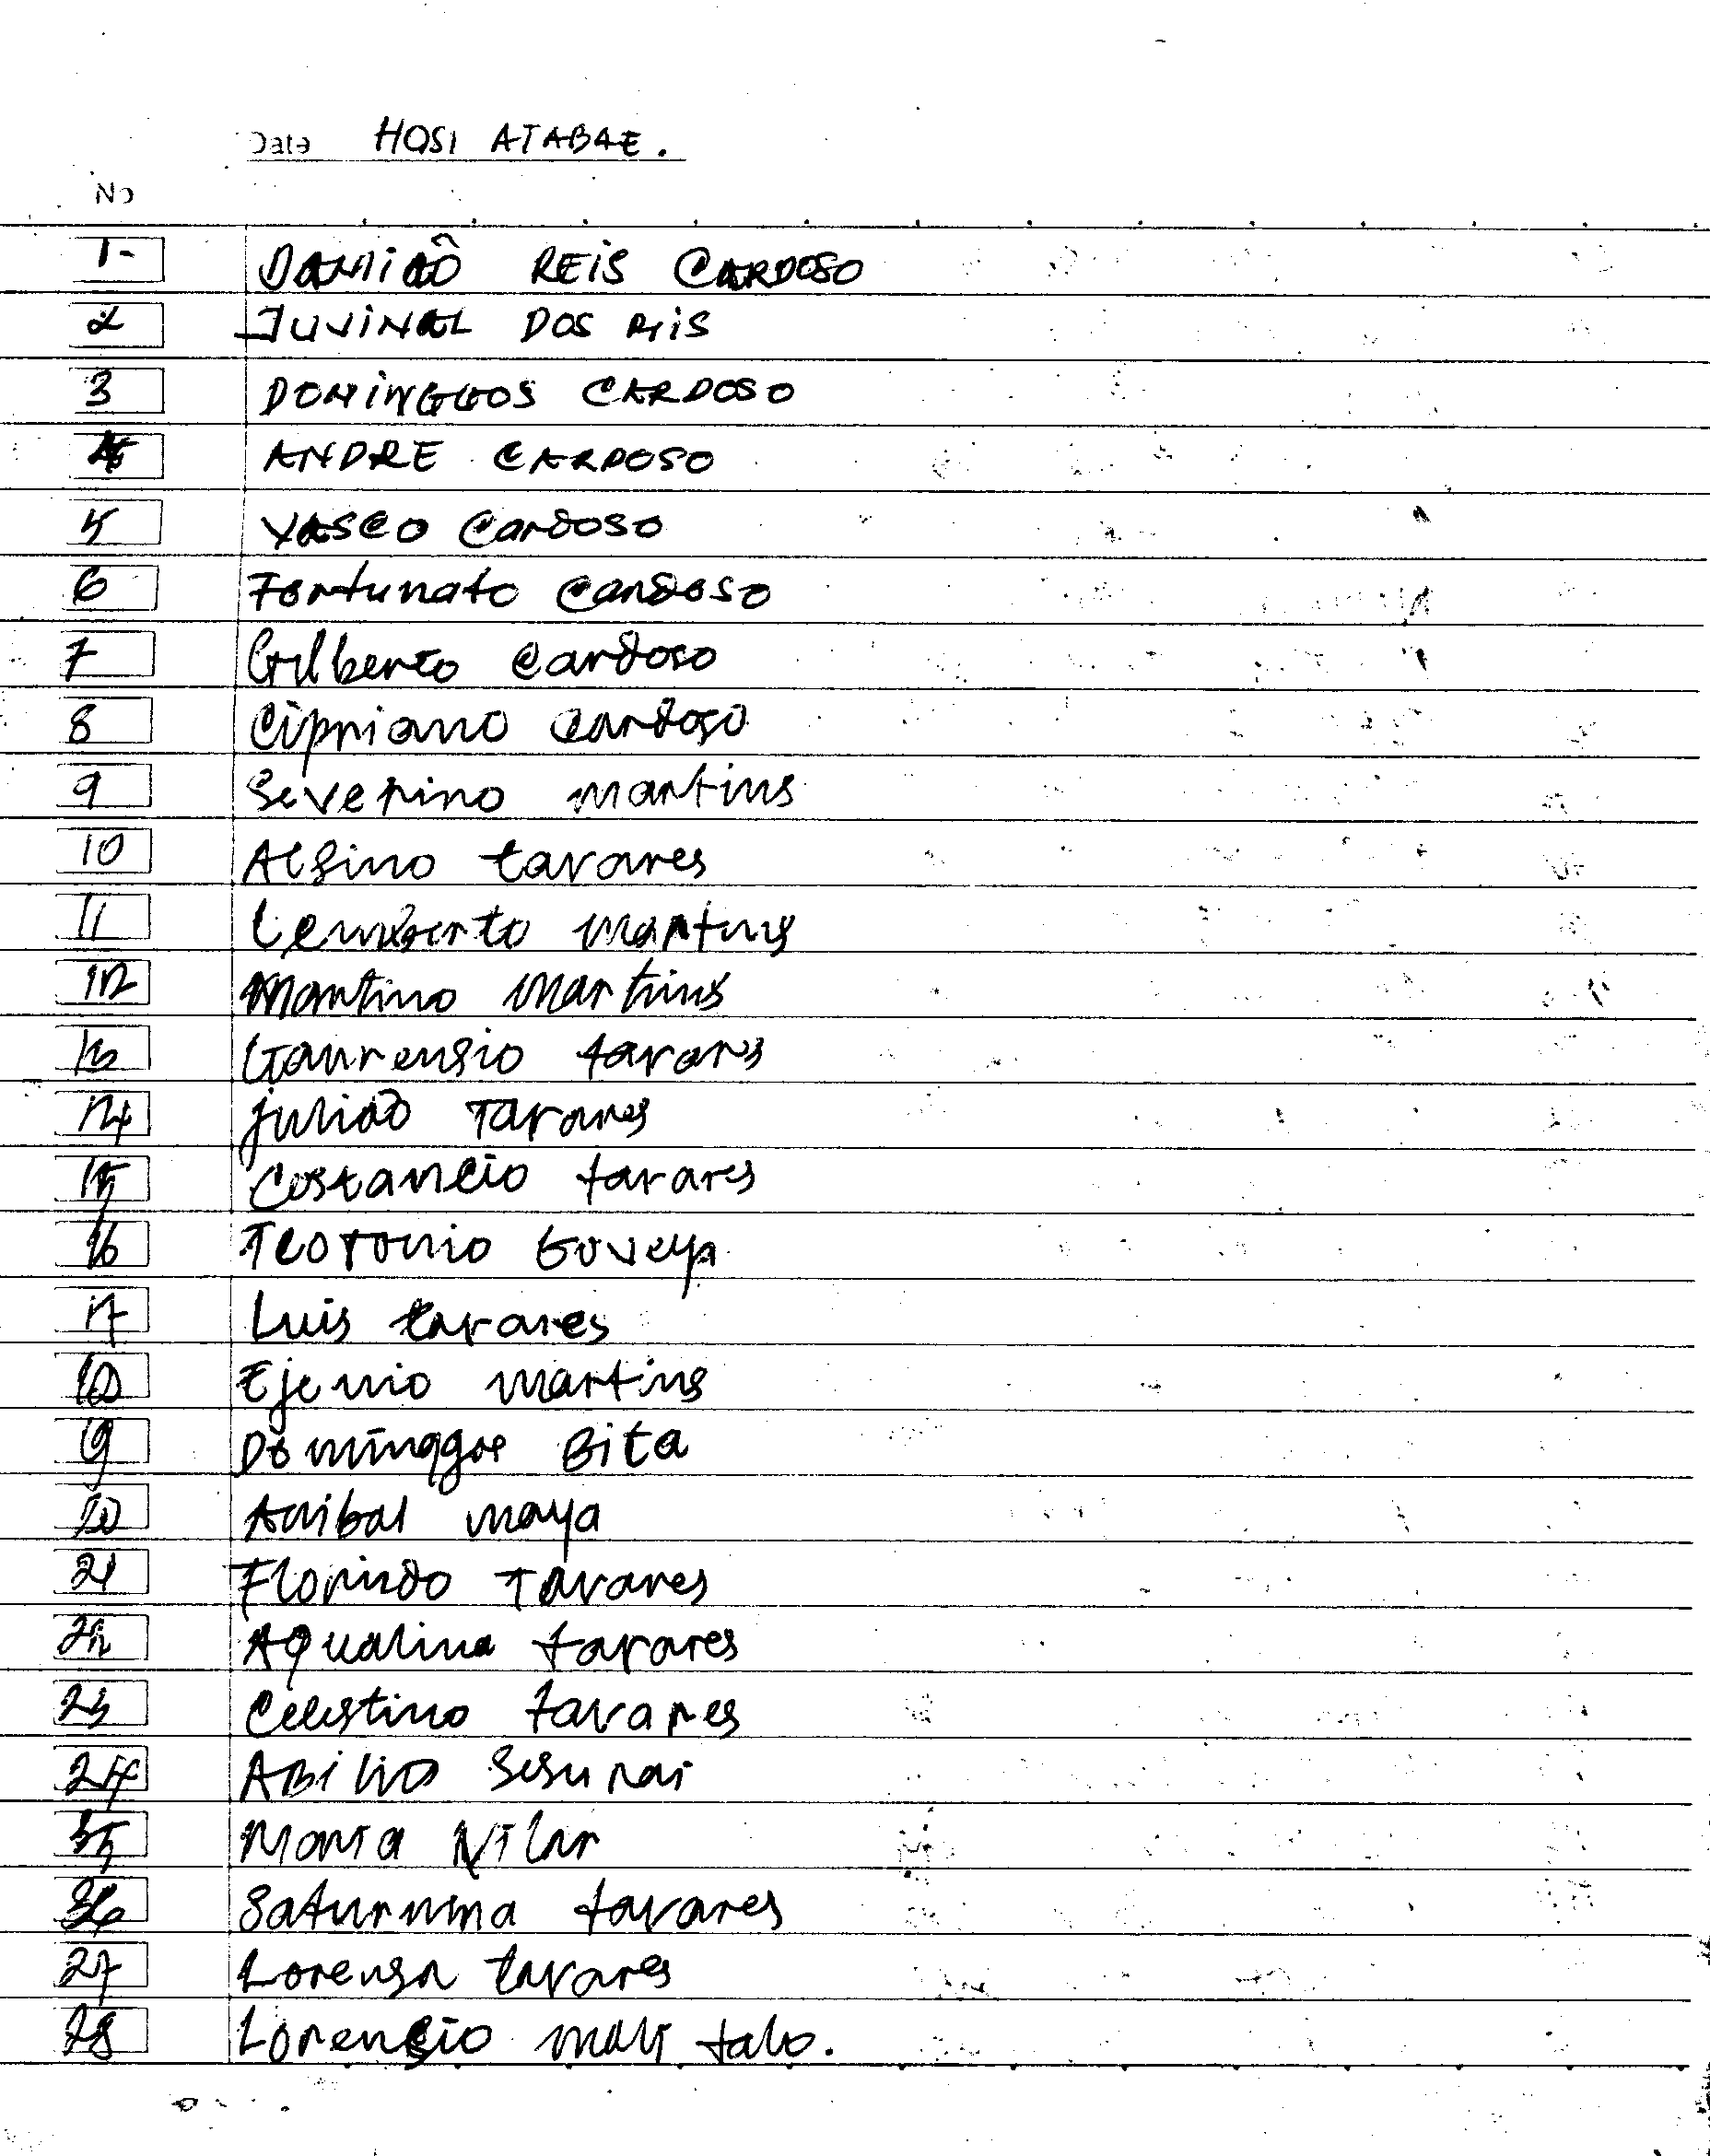 Data HOSI ATABAE.
No
1- DAMIAÔ REIS CARDOSO
2 JUVINAL DOS REIS
3 DOMINGGOS CARDOSO
4 ANDRE CARDOSO
5 VASCO Cardoso
6 Fortunato Cardoso
7 Gilberto Cardoso
8 Cipriano Cardoso
9 Severino martins
10 Alsino tavares
11 martins
12 Martino martins
13 tavares
14 juliaõ Tavares
15 Costancio tavares
16 Teotonio Goveya
17 Luis tavares
18 Ejenio martins
19 Bita
20 Anibal maya
21 Florindo Tavares
22 Aqualina tavares
23 Celestino tavares
24 ABiLiO Sesurai
25 Maria Vilar
26 Saturnina tavares
27 Lorensa tavares
28 Lorencio mali talo.